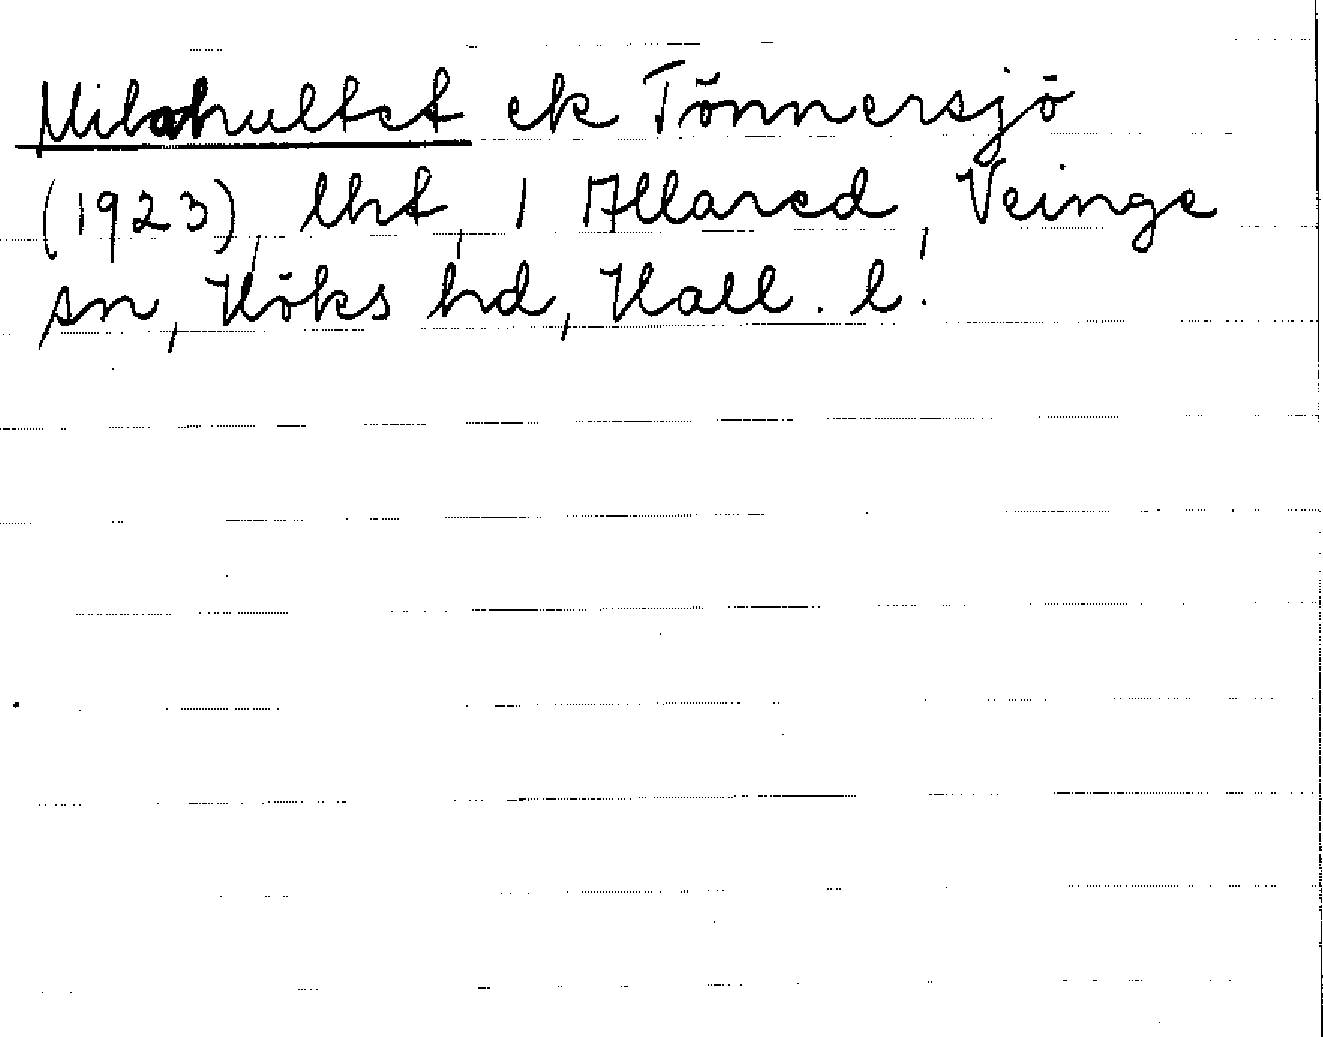 Milahultet ek Tönnersjö
(1923), lht, 1 Allared, Veinge
sn, Höks hd, Hall. l.